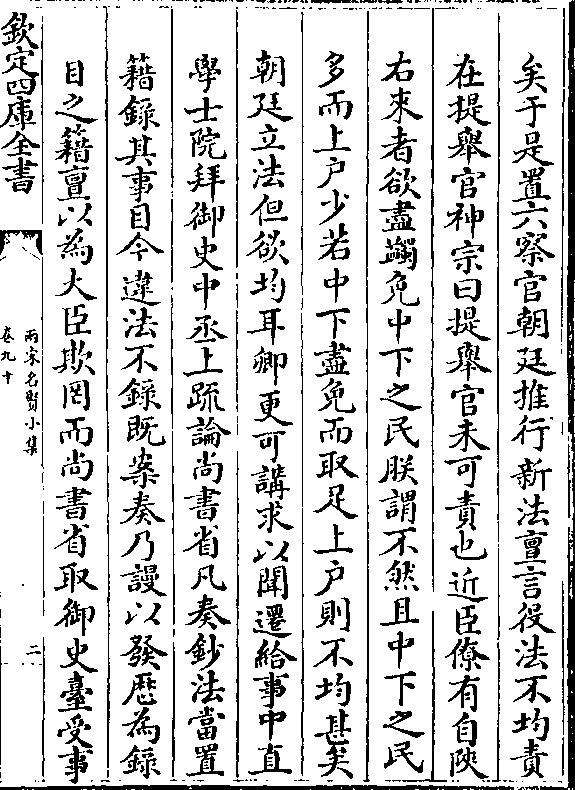 矣于是置六察官朝廷推行新法亶言役法不均責
在提舉官神宗曰提舉官未可責也近臣僚有自陜
右來者欲盡蠲免中下之民朕謂不然且中下之民
多而上户少若中下盡免而取足上户則不均甚矣
朝廷立法但欲均耳卿更可講求以聞遷給事中直
學士院拜御史中丞上疏論尚書省凡奏鈔法當置
籍錄其事目今違法不錄既案奏乃謾以發厯為錄
目之籍亶以為大臣欺罔而尚書省取御史臺受事
欽定四庫全書
兩宋名賢小集
卷九十
二